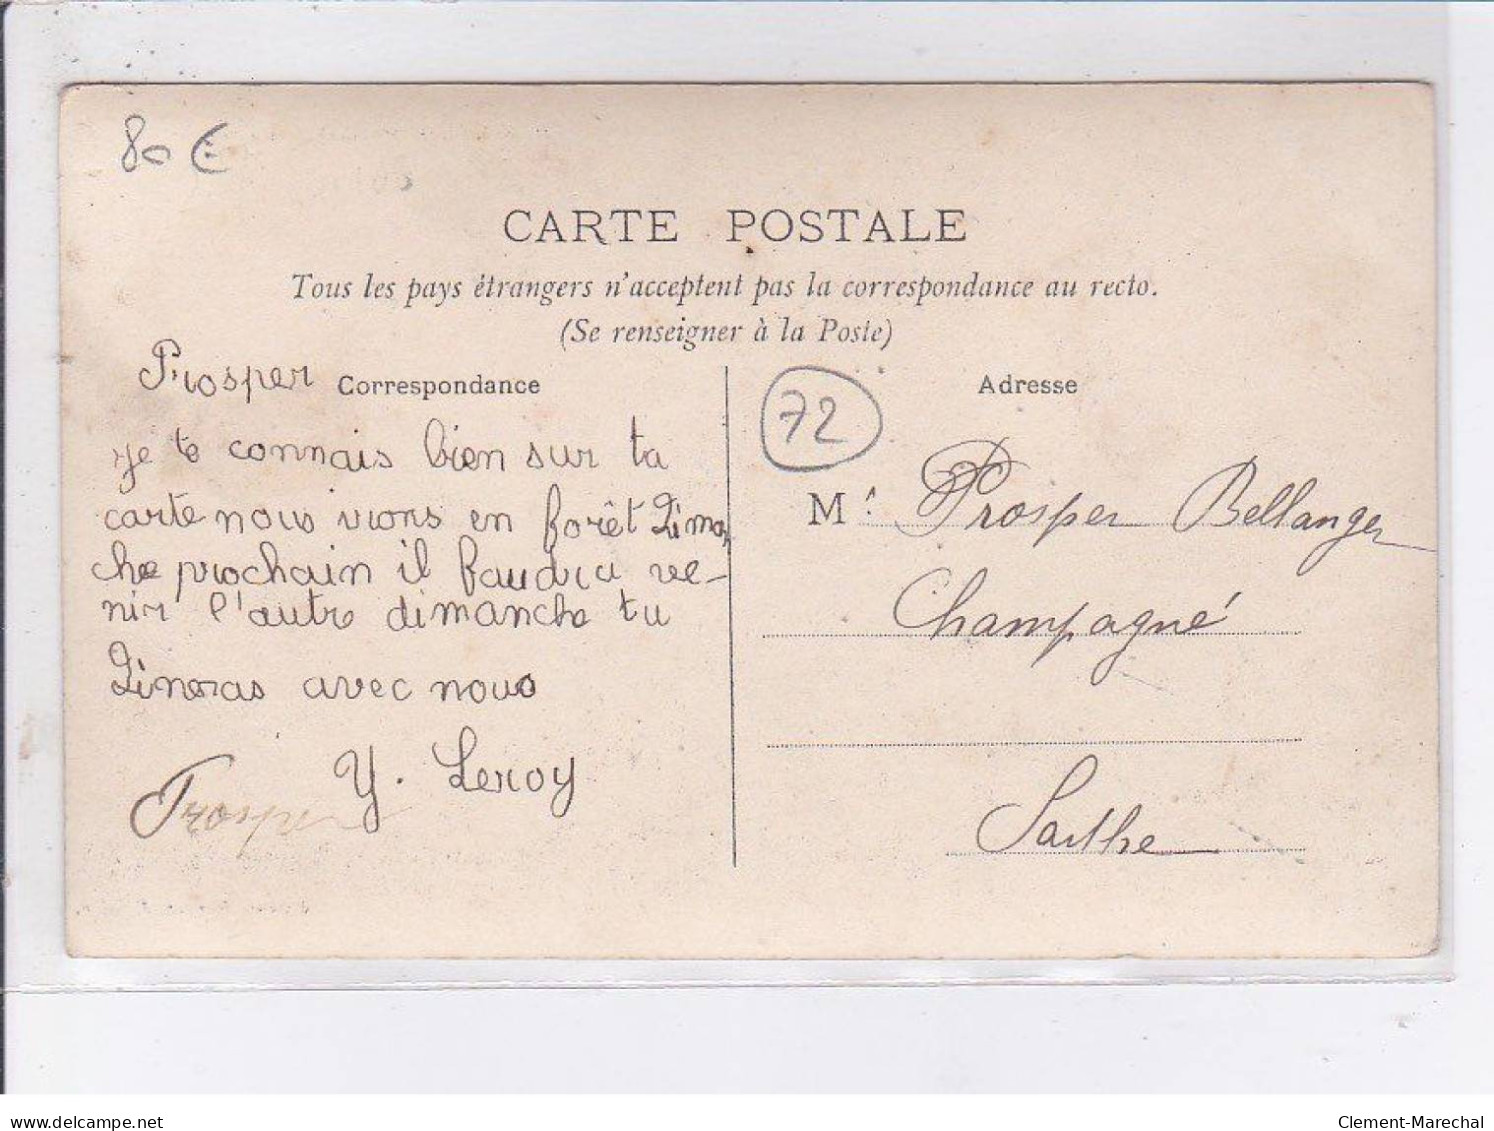 80 €
CARTE POSTALE
Tous les pays étrangers n'acceptent pas la correspondance au recto.
(Se renseigner à la Poste)
Prosper
Correspondance
je te connais bien sur ta
carte nous vions en forêt Diman
che prochain il faudra ve-
nir l'autre dimanche tu
Dineras avec nous
Y. Leroy
Prosper
72
Adresse
Mr Prosper Bellanger
Champagné
Sarthe
delcampe.net
Clement-Marechal